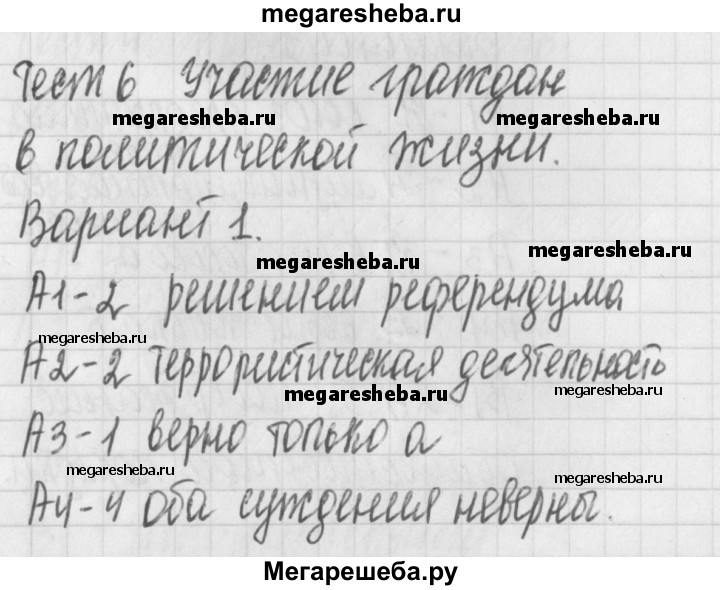 megaresheba.ru
Тест 6 Участие граждан
megaresheba.ru
megaresheba.ru
в политической жизни.
Вариант 1.
megaresheba.ru
megaresheba.ru
А1-2 решением референдума
megaresheba.ru
А2-2 террористическая деятельность
megaresheba.ru
megaresheba.ru
А3-1 верно только а
megaresheba.ru
megaresheba.ru
А4-4 оба суждения неверны.
Мегарешеба.ру